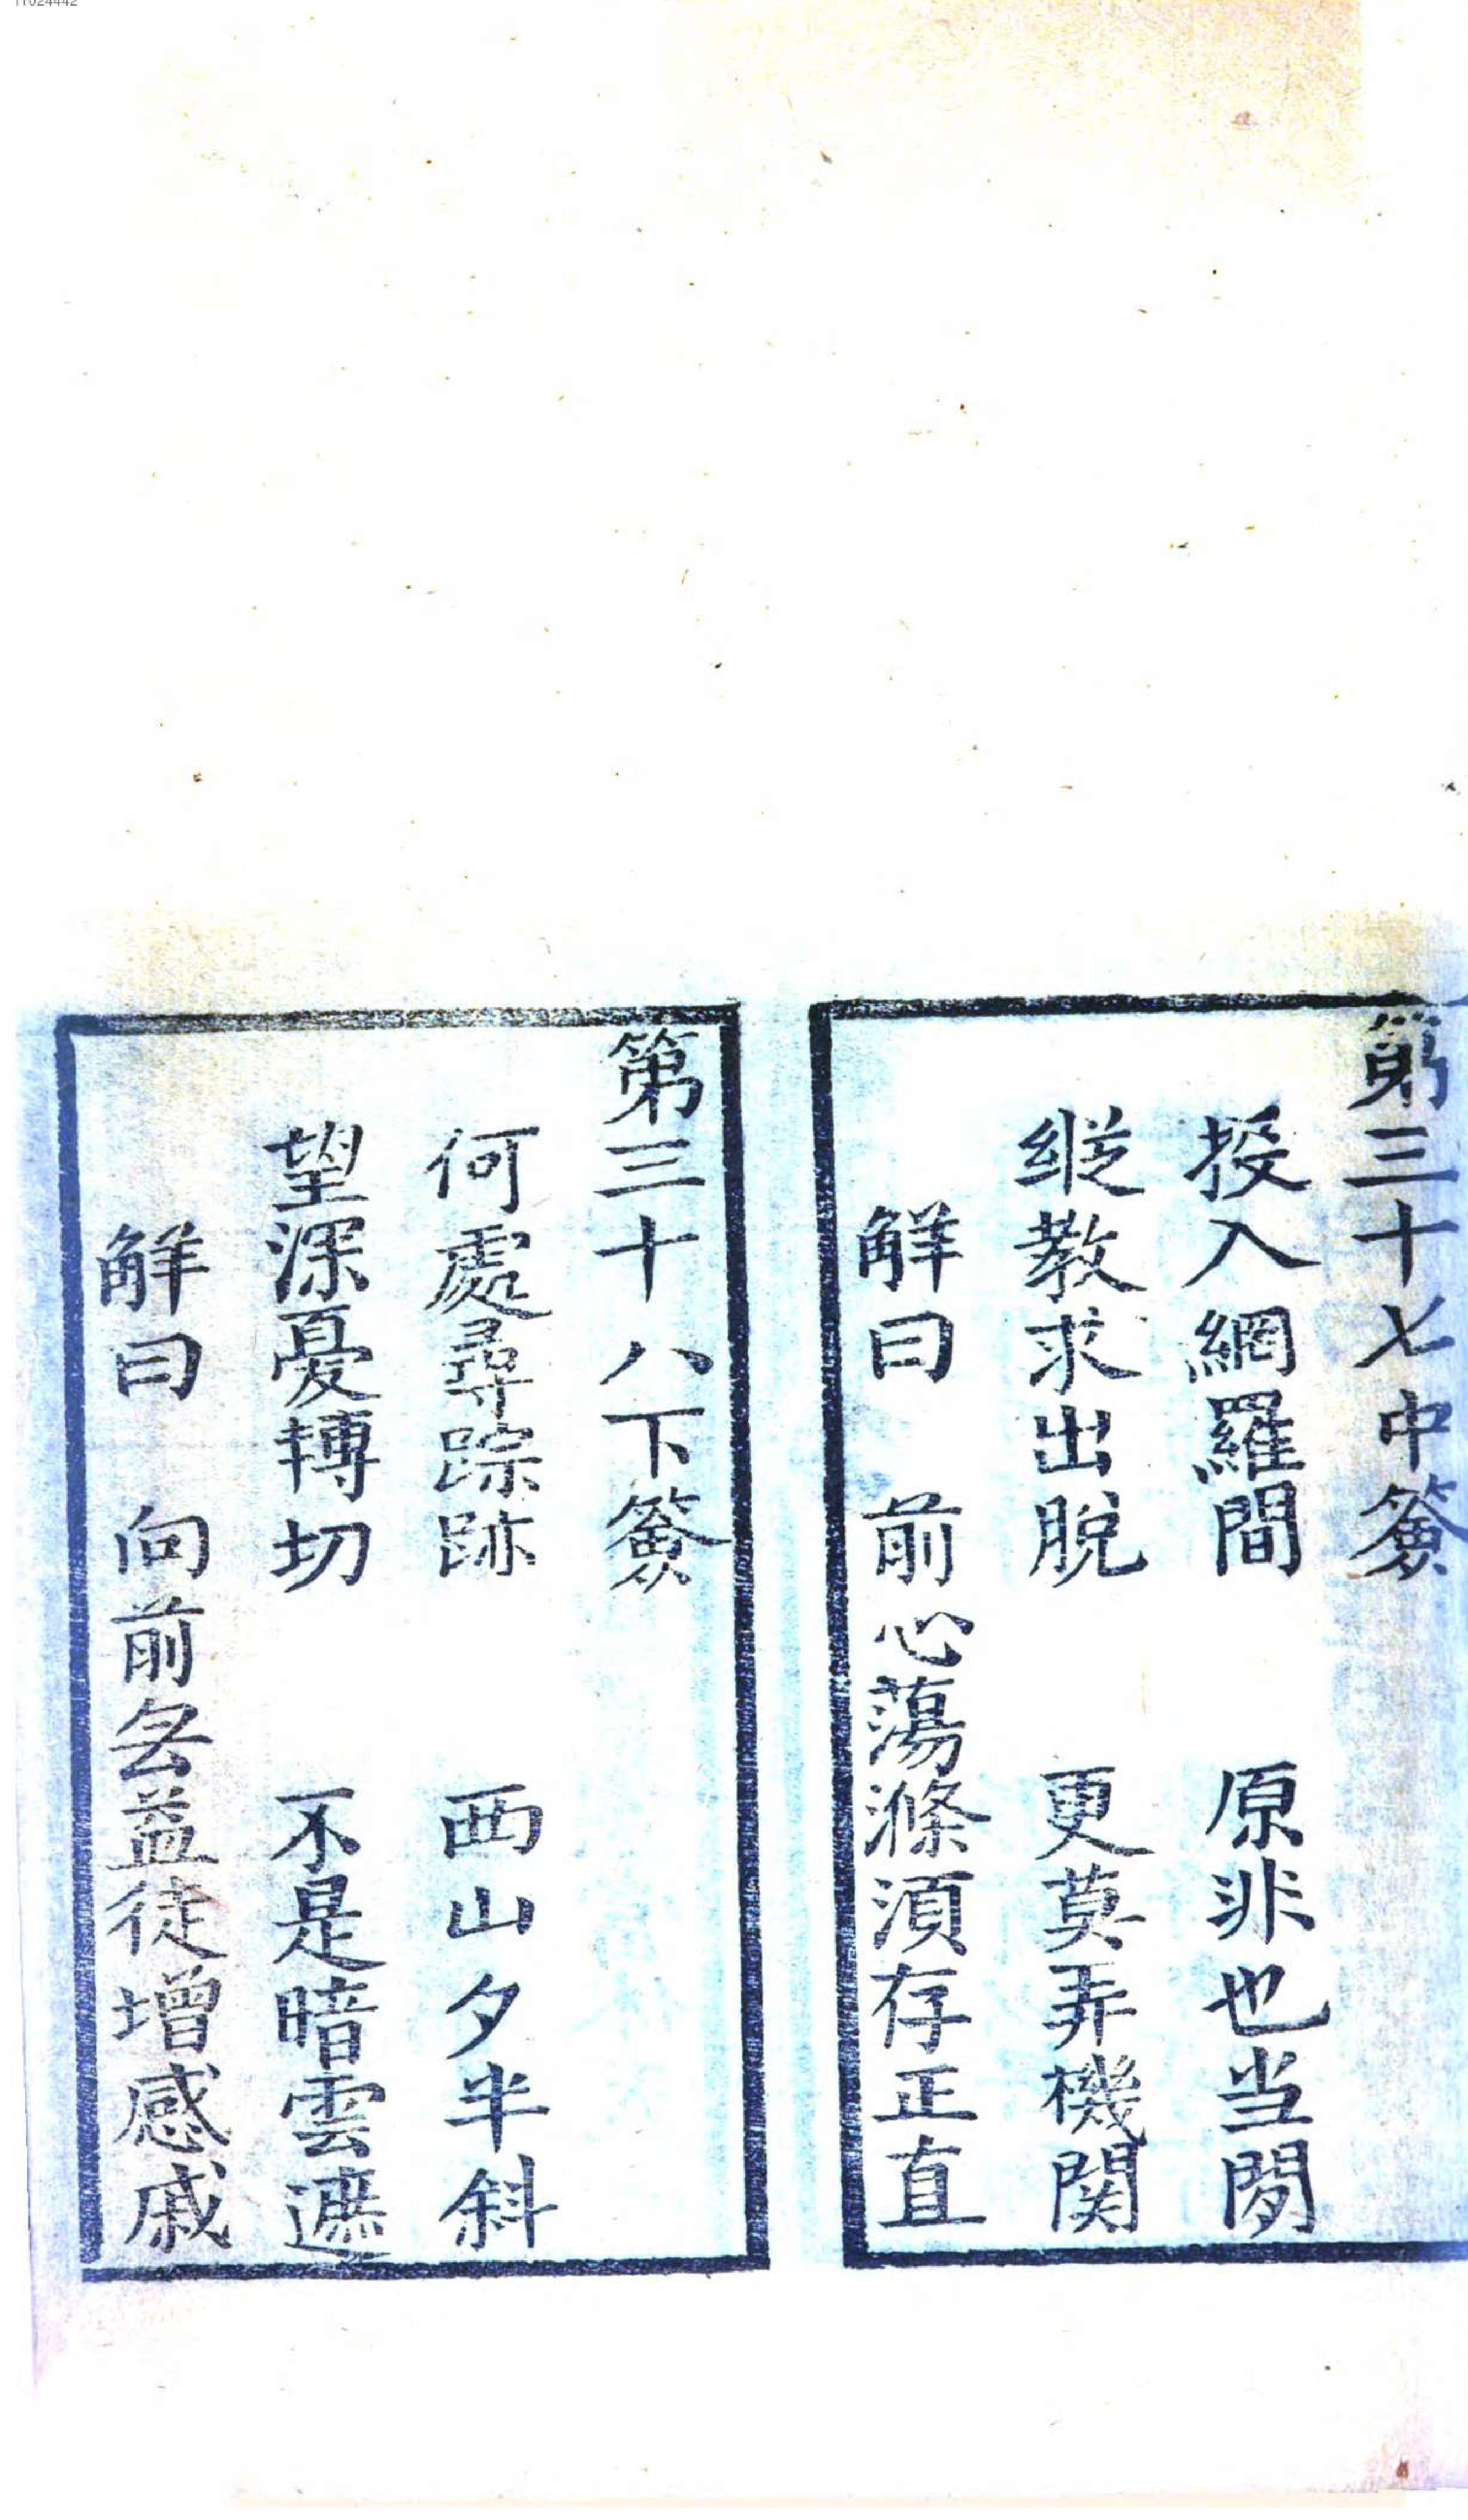 第三十七中簽
投入網羅間　原非也当閑
縦教求出脱　更莫弄機関
解曰　前心蕩滌須存正直
第三十八下簽
何處尋踪跡　西山夕半斜
望深憂轉切　不是暗雲遮
解曰　向前無益徒增感戚